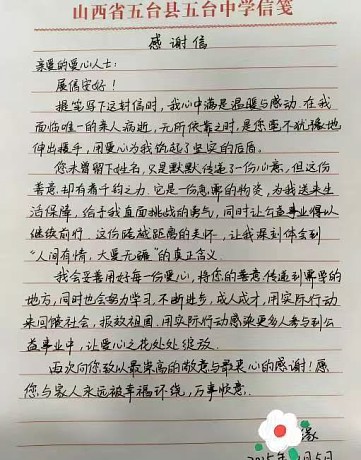 山西省五台县五台中学信笺
感谢信
亲爱的爱心人士:
展信安好!
提笔写下这封信时,我心中满是温暖与感动.在我
面临唯一的亲人病逝,无所依靠之时,是您毫不犹豫地
伸出援手,用爱心为我筑起了坚实的后盾。
您未曾留下姓名,只是默默传递了一份心意,但这份
善意,却有着千钧之力.它是一份急需的物资,为我送来生
活保障,给予我直面挑战的勇气,同时让公益事业得以
继续前行.这份跨越距离的关怀,让我深刻体会到
“人间有情,大爱无疆”的真正含义.
我会妥善用好每一份爱心,将您的善意传递到需要的
地方,同时也会努力学习,不断进步,成人成才,用实际行动
来回馈社会,报效祖国,用实际行动感染更多人参与到公
益事业中,让爱心之花处处绽放.
再次向您致以最崇高的敬意与最衷心的感谢!愿
您与家人永远被幸福环绕,万事顺意.
月5日